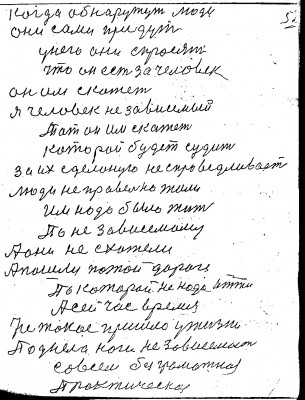 когда обнаружут люди
5.
они сами придут
унего они спросят
что он ест за человек
он им скажет
я человек не зависемый
Тат он им скажет
которой будет судит
за их сделоную неспроведливаст
люди не правелно жили
Им надо было жит
По не зависемому
А они не схотели
А пошли потой дороги
По которой не надо итти
А сей час время
поднела ноги не зависемаст
совсем безграмотная
Практическая